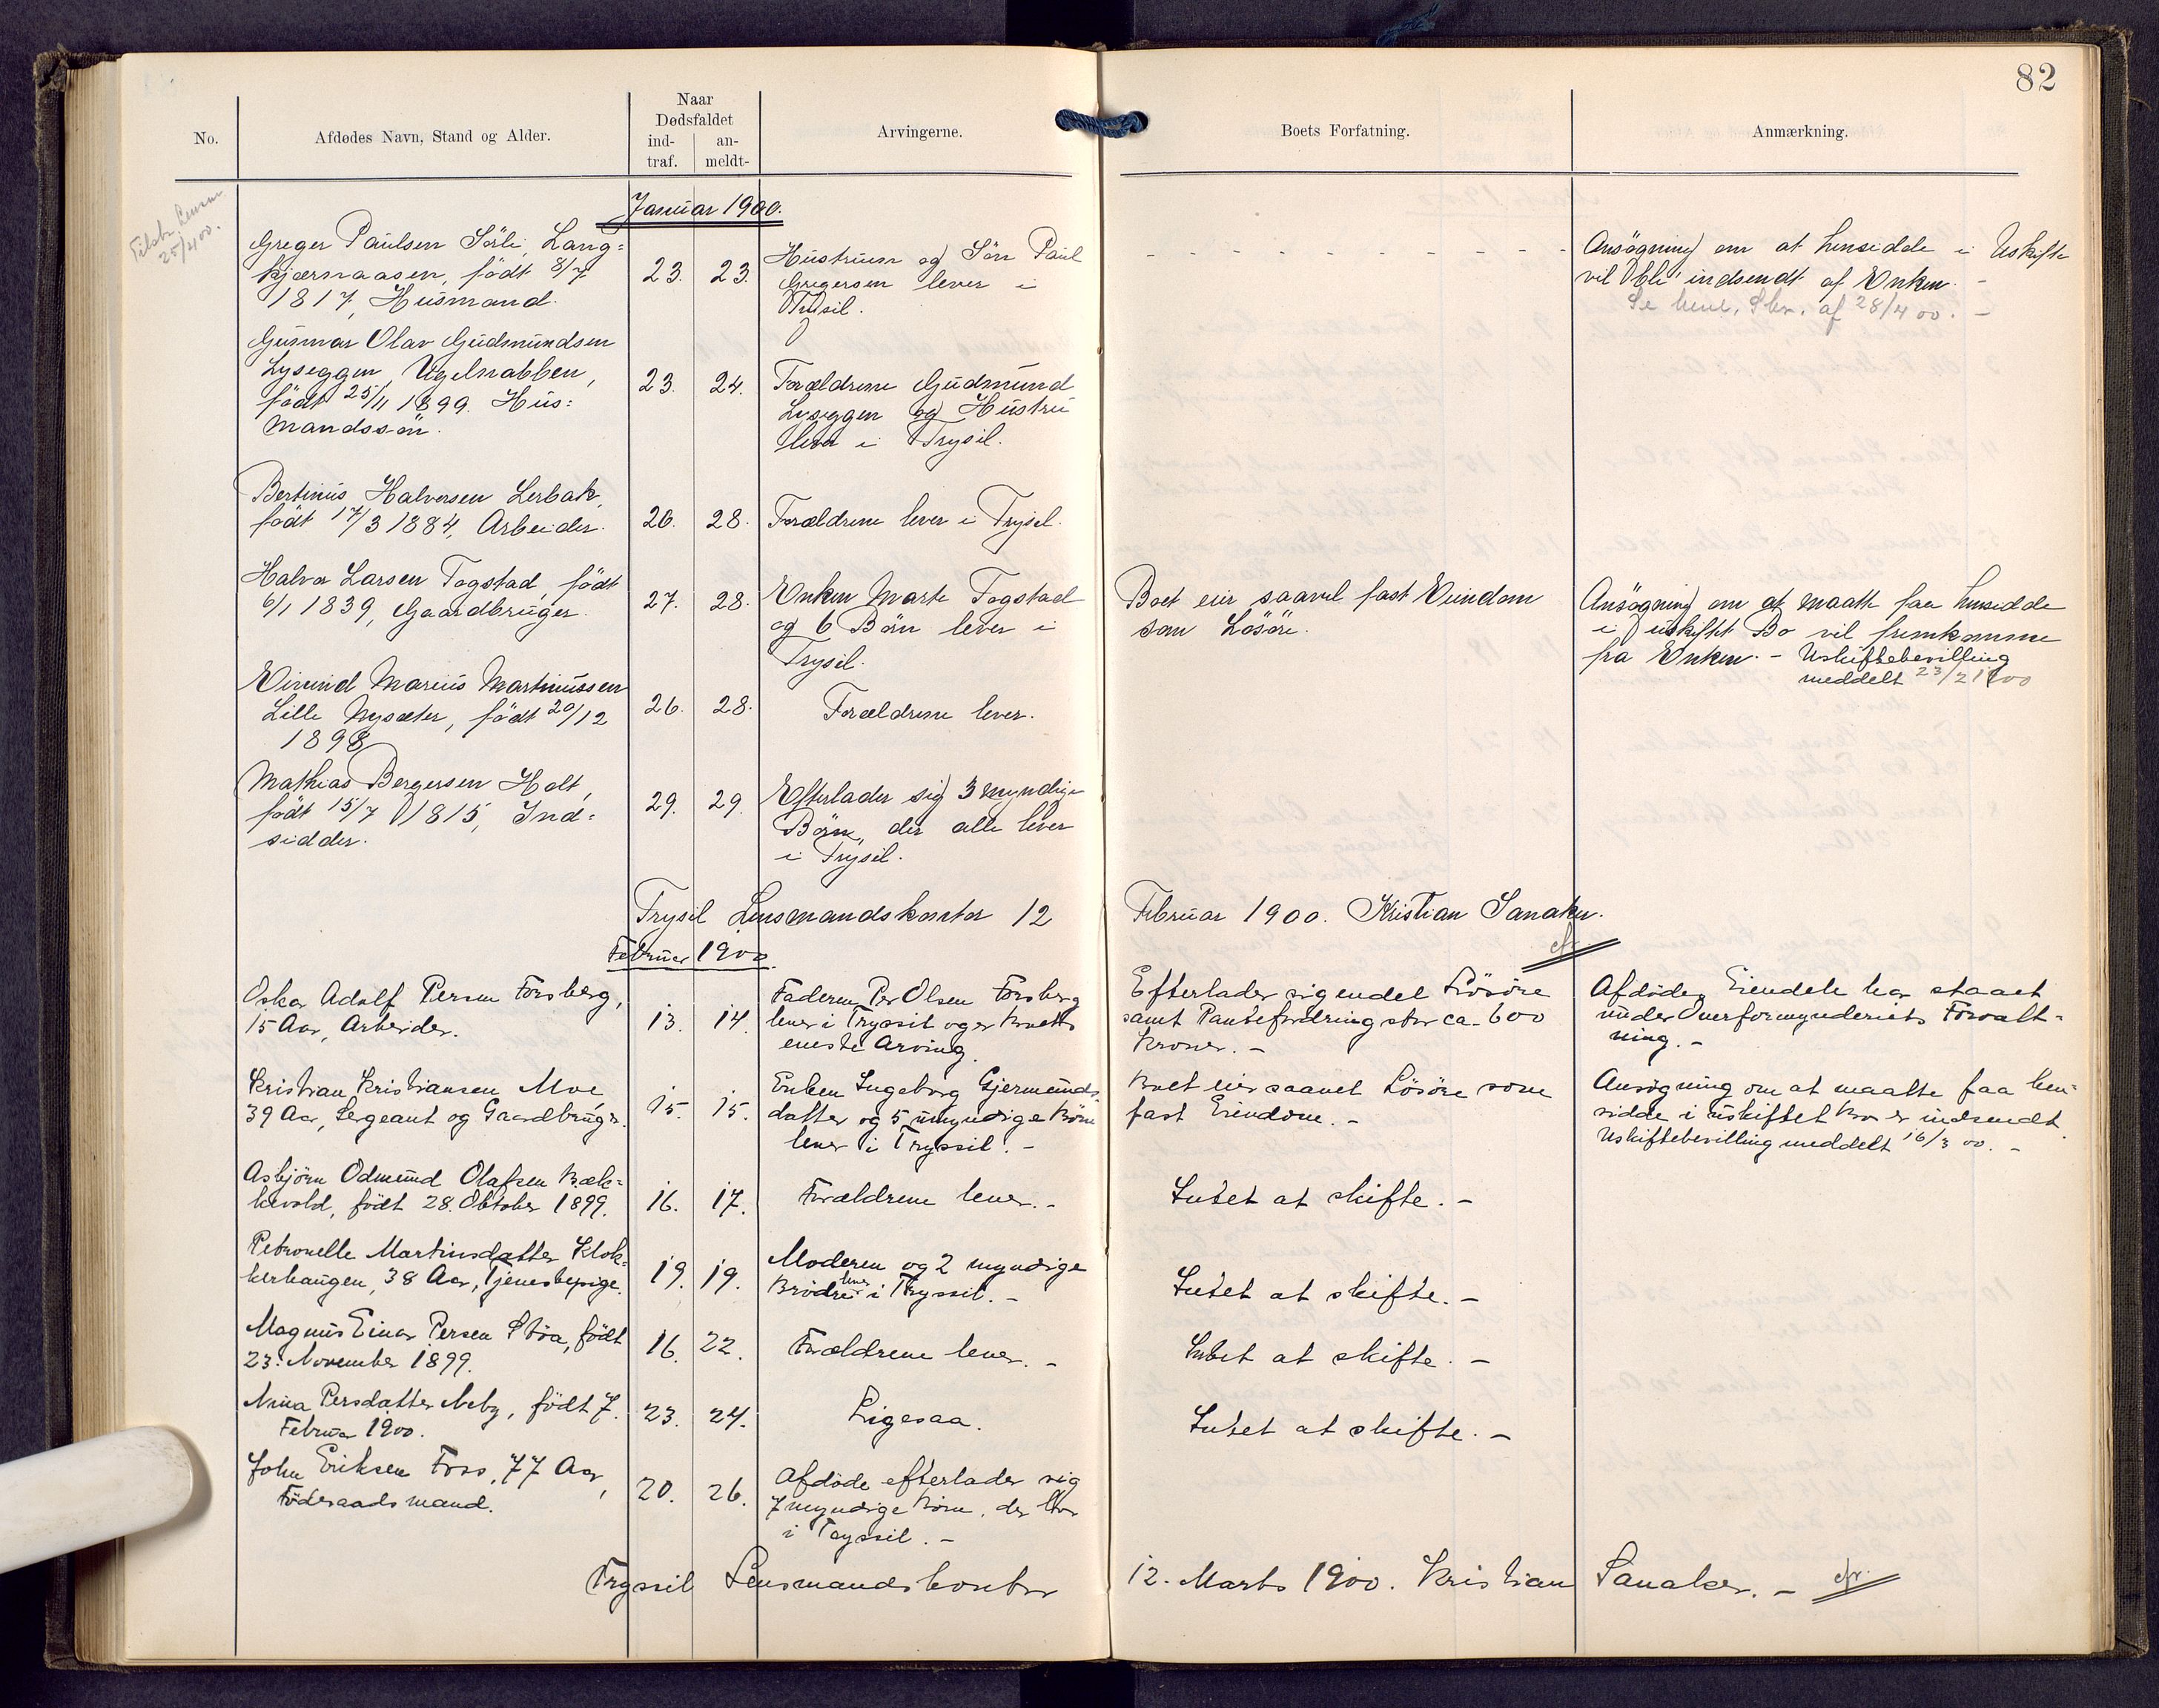 82
No.
Afdødes Navn, Stand og Alder.
Naar
Dødsfaldet
ind-
traf.
an-
meldt-
Arvingerne.
Boets Forfatning.
Anmærkning.
Januar 1900.
25/4 00.
Greger Paulsen Sörli, Lang-
kjærnaasen, födt 8/7
1817, Husmand.
23. 23.
Hustruen og Sön Paul
Gregersen lever i
Trysil.
Ansögning om at hensidde i Uskifte
vil bli indsendt af Enken. -
Se Skr. af 28/4 00. -
Gunnar Olav Gudmundsen
Lyseggen, Ugelnabben,
födt 25/11 1899. Hus:
mandssön.
23. 24.
Forældrene Gudmund
Lyseggen og Hustru
lever i Trysil.
Bertinus Halvorsen Lerbak,
födt 17/3 1884, Arbeider.
26. 28.
Forældrene lever i Trysil.
Halvor Larsen Togstad, födt
6/1 1839, Gaardbruger.
27. 28.
Enken Marte Togstad
og 6 Börn lever i
Trysil.
Boet eier saavel fast Eiendom
som Lösöre.
Ansögning om at maatte faa hensidde
i uskiftet Bo vil fremkomme
fra Enken. - Uskiftebevilling
meddelt 23/2 1900
Eivind Marius Martinussen
Lille Nysæter, födt 20/12
1898
26. 28.
Forældrene lever.
Mathias Bergersen Holt,
födt 15/7 1815, Ind-
sidder.
29. 29.
Efterlader sig 3 myndige
Börn, der alle lever
i Trysil.
Trysil Lensmandskontor 12 Februar 1900. Kristian Sanaker.
Februar 1900.
Oskar Adolf Persen Forsberg,
15 Aar, Arbeider.
13. 14.
Faderen Per Olsen Forsberg
lever i Tryssil og er Boets
eneste Arving.
Efterlader sig endel Lösöre
samt Pantefordring stor ca. 600
Kroner. -
Afdödes Eiendele har staaet
under Overformynderiets Forvalt-
ning. -
Kristian Kristiansen Moe,
39 Aar, Sergeant og Gaardbruger.
15. 15.
Enken Ingeborg Gjermunds-
datter og 5 umyndige Börn
lever i Tryssil. -
Boet eier saavel Lösöre som
fast Eiendom. -
Ansögning om at maatte faa hen-
sidde i uskiftet Bo er indsendt.
Uskiftebevilling meddelt 16/3 00. -
Asbjörn Odmund Olafsen Bæk-
kevold, födt 28. Oktober 1899.
16. 17.
Forældrene lever. -
Intet at skifte. -
Petronelle Martinsdatter Klok-
kerhaugen, 38 Aar, Tjenestepige.
19. 19.
Moderen og 2 myndige
Brödre lever i Tryssil. -
Intet at skifte. -
Magnus Einar Persen Stöa, födt
23. November 1899.
16. 22.
Forældrene lever. -
Intet at skifte. -
Nina Persdatter Neby, födt 7.
Februar 1900.
23. 24.
Ligesaa.
Intet at skifte. -
John Eriksen Foss, 77 Aar,
Föderaadsmand.
20. 26.
Afdöde efterlader sig
7 myndige Börn, der lever
i Tryssil. -
Tryssil Lensmandskontor 12. Marts 1900. Kristian Sanaker. -